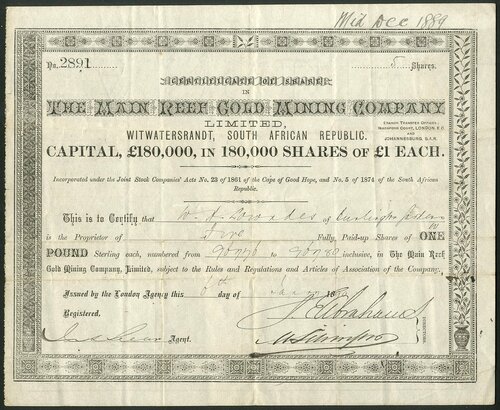 Mid Dec 1889
No. 2891
5 Shares.
CERTIFICATE OF SHARES
IN
THE MAIN REEF GOLD MINING COMPANY
LIMITED,
BRANCH TRANSFER OFFICES:
LONDON, E.C.
AND
JOHANNESBURG, S.A.R.
WITWATERSRANDT, SOUTH AFRICAN REPUBLIC.
CAPITAL, £180,000, IN 180,000 SHARES OF £1 EACH.
Incorporated under the Joint Stock Companies' Acts No. 23 of 1861 of the Cape of Good Hope, and No. 5 of 1874 of the South African
Republic.
This is to Certify that of
is the Proprietor of Five Fully Paid-up Shares of ONE
POUND Sterling each, numbered from to inclusive, in The Main Reef
Gold Mining Company, Limited, subject to the Rules and Regulations and Articles of Association of the Company.
Issued by the London Agency this day of
Registered.
Agent.
DIRECTORS